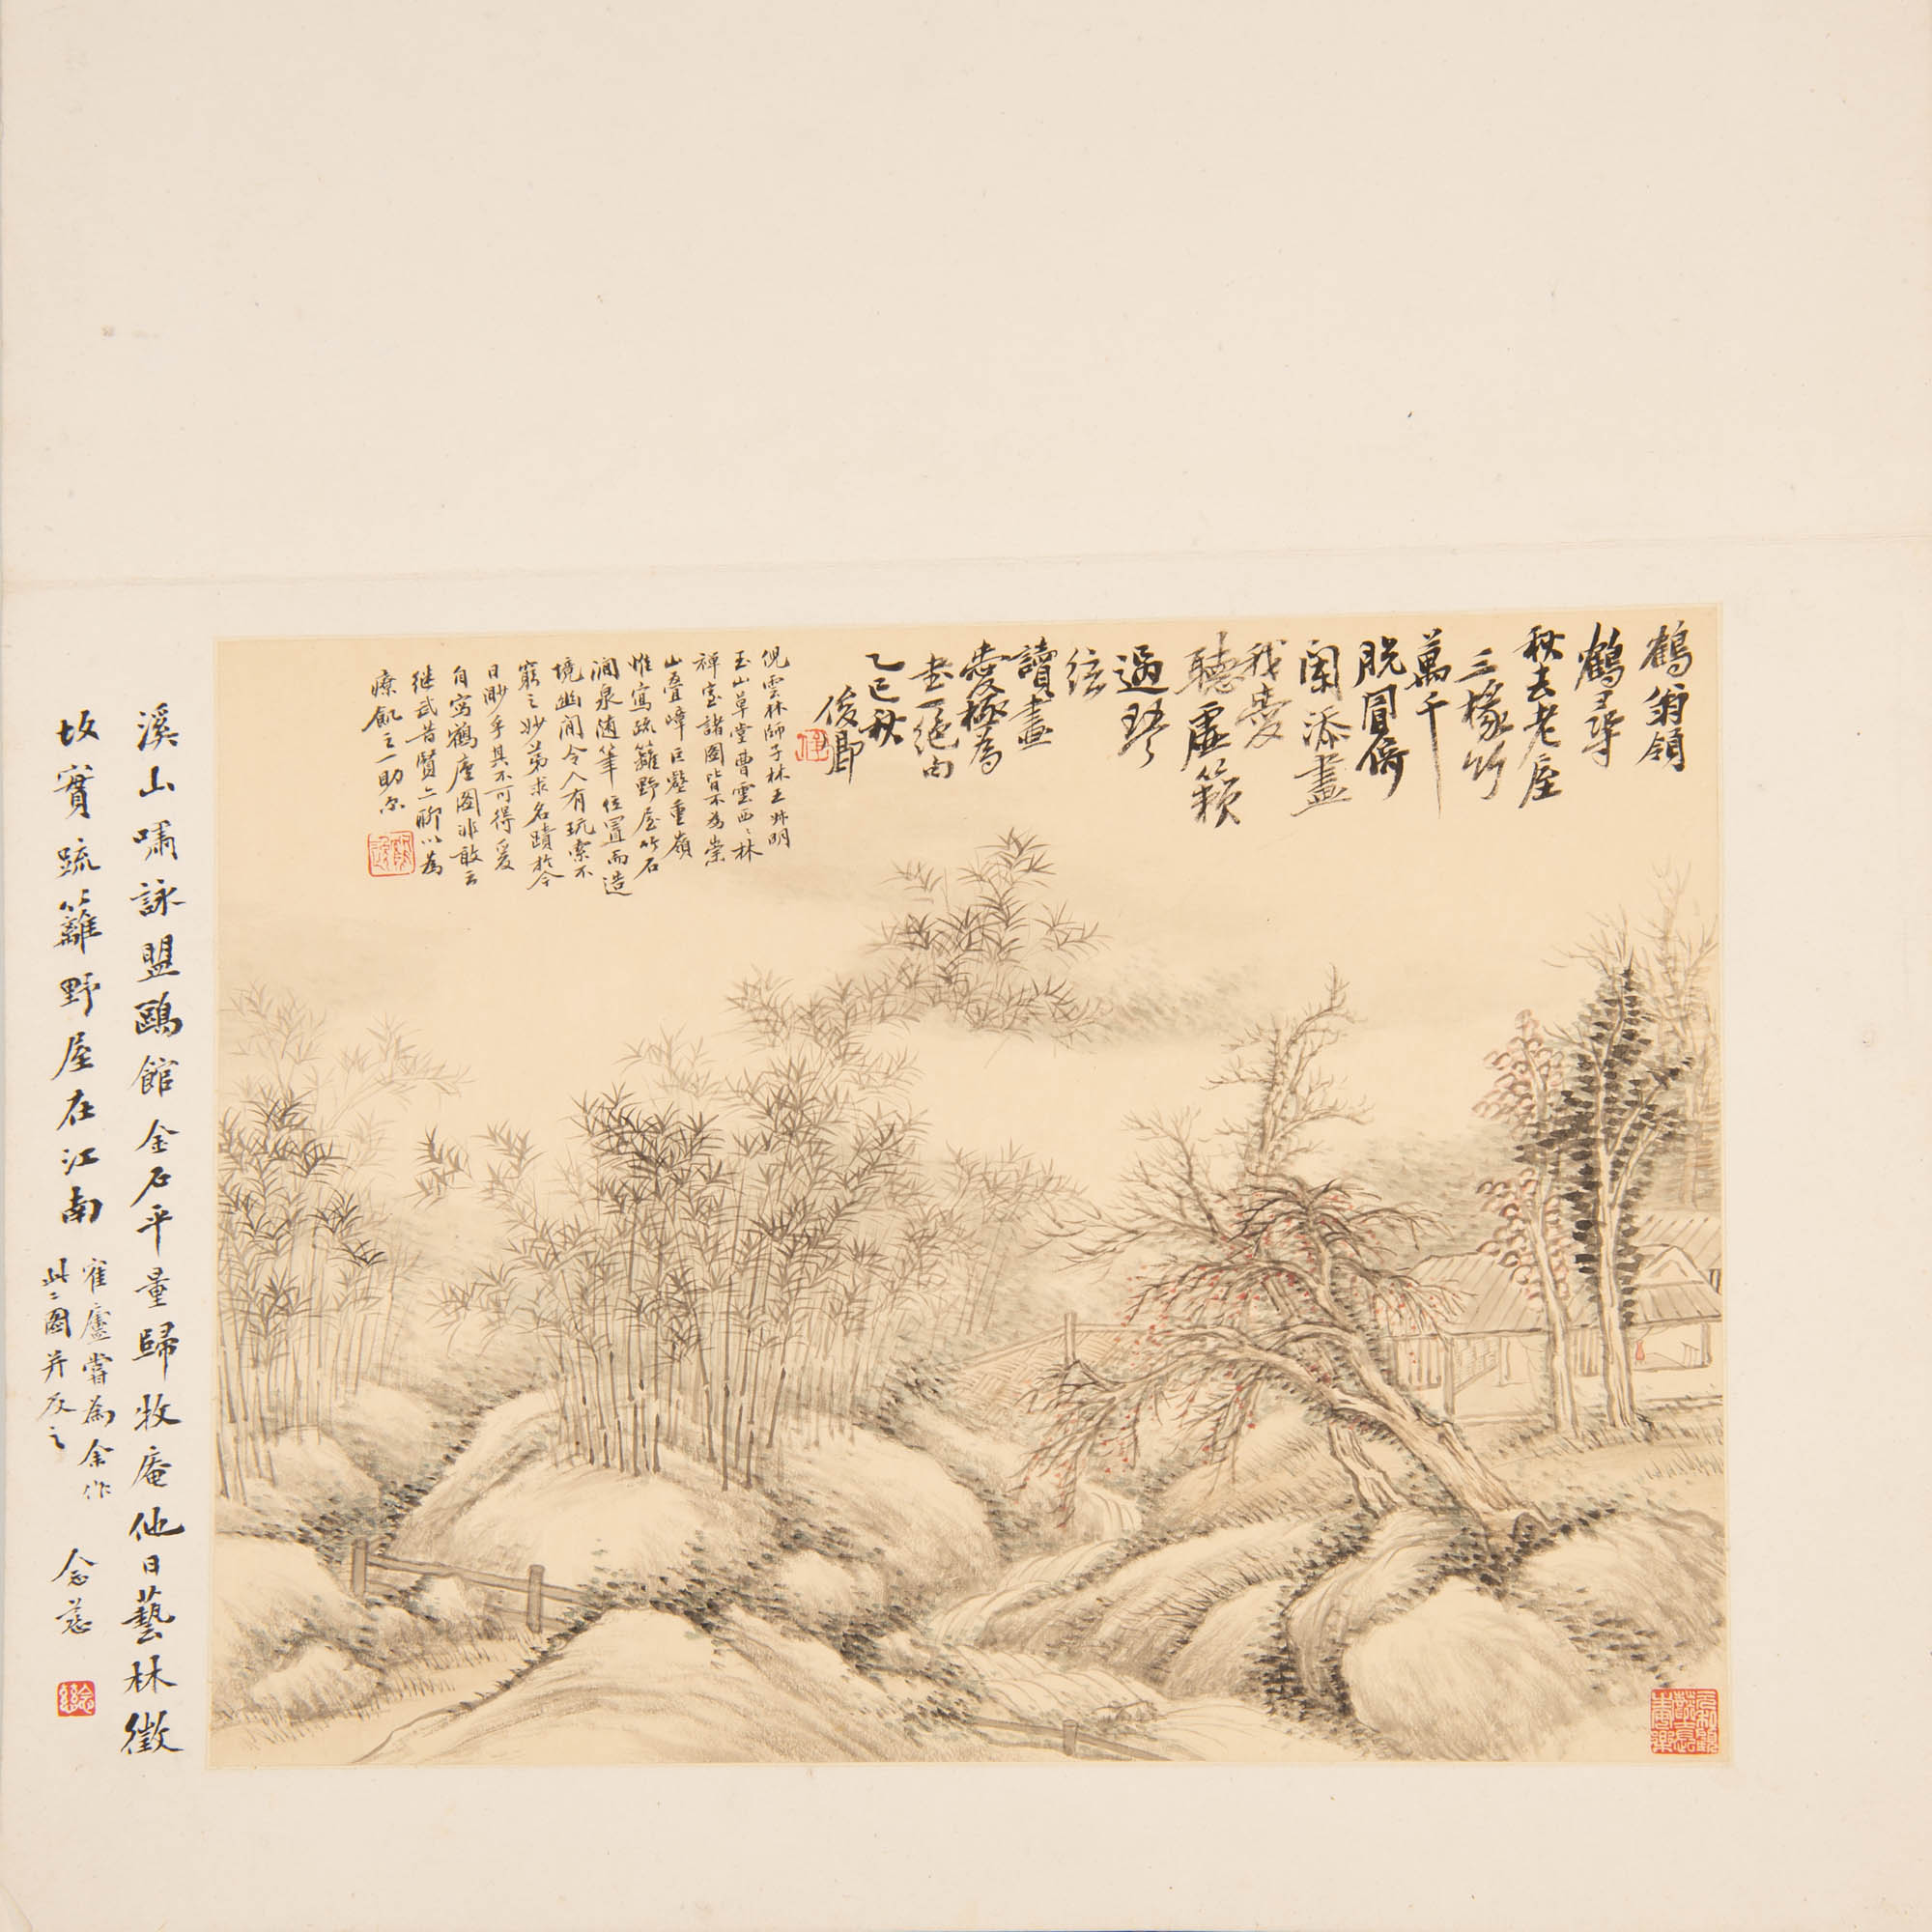 鶴翁領
鶴又尋
秋去老屋
三椽竹
萬千
脫冒倚
闌添畫
我愛
聽虛籟
過琴
弦
讀畫
愛極為
書一絕句
乙巳秋
俊卿
倪雲林師子林王叔明
玉山草堂曹雲西林
禪室諸圖皆不為崇
山疊嶂巨壑重嶺
惟寫疏籬野屋竹石
澗泉隨筆位置而造
境幽閒令人有玩索不
窮之妙弟求名蹟於今
日渺乎其不可得爰
自寫鶴廬圖非敢云
繼武昔賢亦聊以為
療飢之一助尔
溪山嘯詠盟鷗館金石平量歸牧庵他日藝林徵
故實疏籬野屋在江南
寉廬嘗為余作
此二圖并及之
念慈